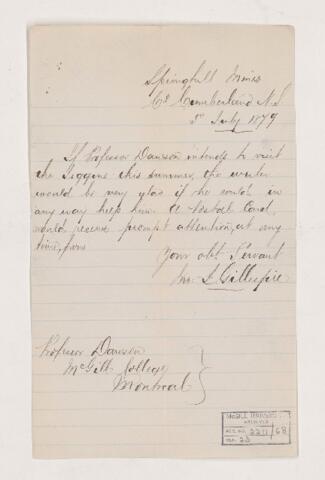 Springhill Mines
Co Cumberland N.S
5th July 1879
If Professor Dawson intends to visit
the Joggins this summer, the writer
would be very glad if he could in
any way help him. A Postal Card,
would receive prompt attention, at any
time, from
Your obt. Servant
Wm. S. Gillespie
Professor Dawson
McGill College
Montreal
McGILL UNIVERSITY
ARCHIVES
ACC. NO. 2211/68
REF. 23